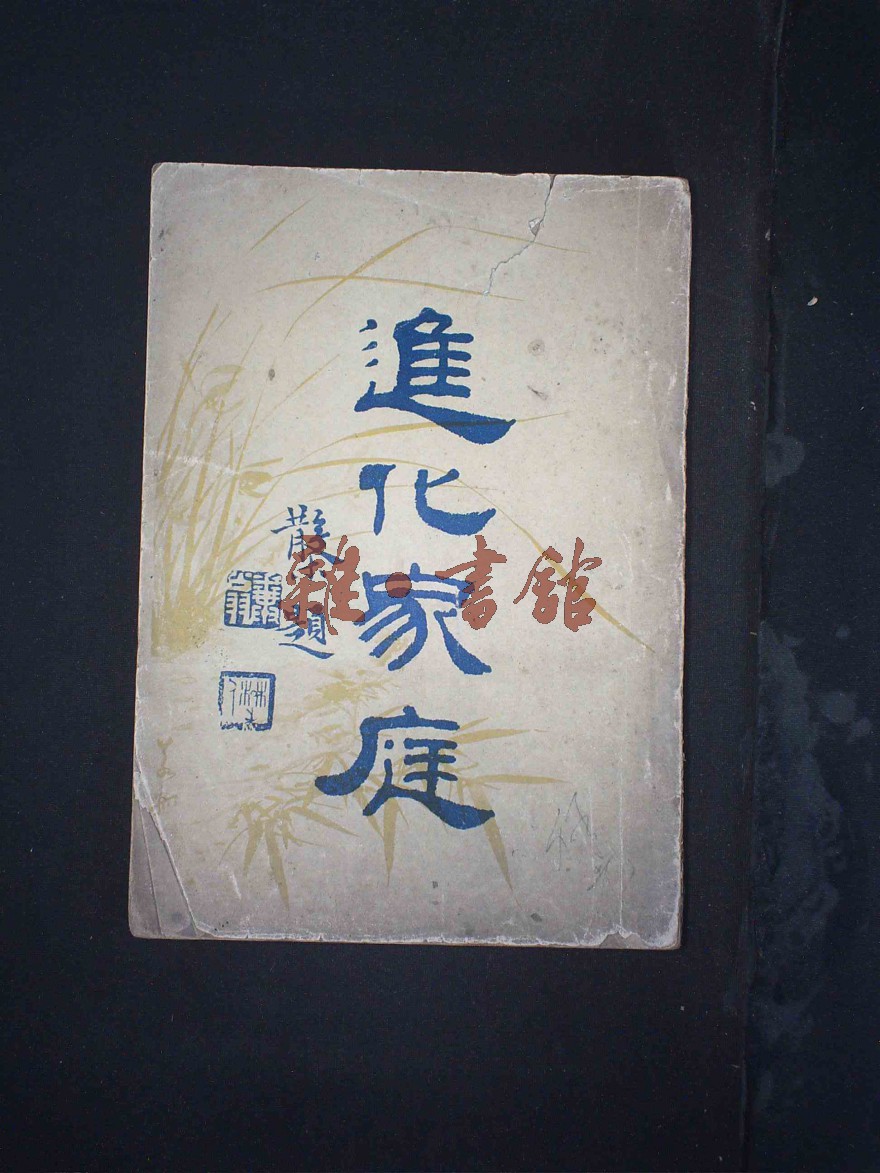 進化家庭
題
雜·書館